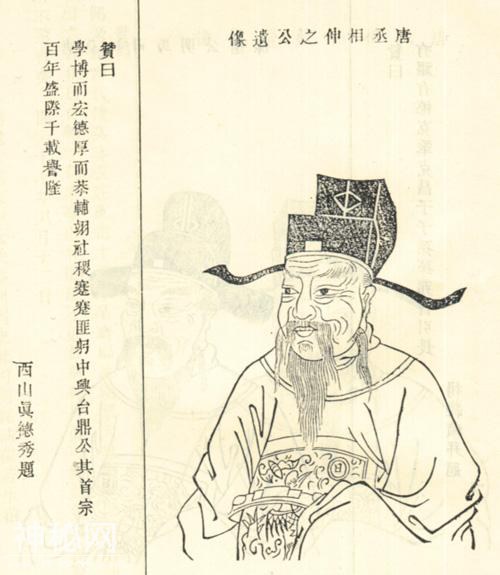 唐丞相伸之公遺像
贊曰
學博而宏德厚而恭輔翊社稷蹇蹇匪躬中興台鼎公其首宗
百年盛際千載譽隆
西山眞德秀題
神秘网